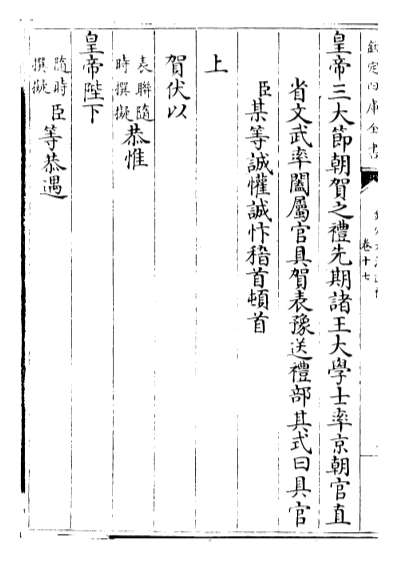 欽定四庫全書
卷十七
皇帝三大節朝賀之禮先期諸王大學士率京朝官直
省文武率闔屬官具賀表豫送禮部其式曰具官
臣某等誠懽誠忭稽首頓首
上
賀伏以
表聯隨
時撰擬
恭惟
皇帝陛下
隨時
撰擬
臣等恭遇